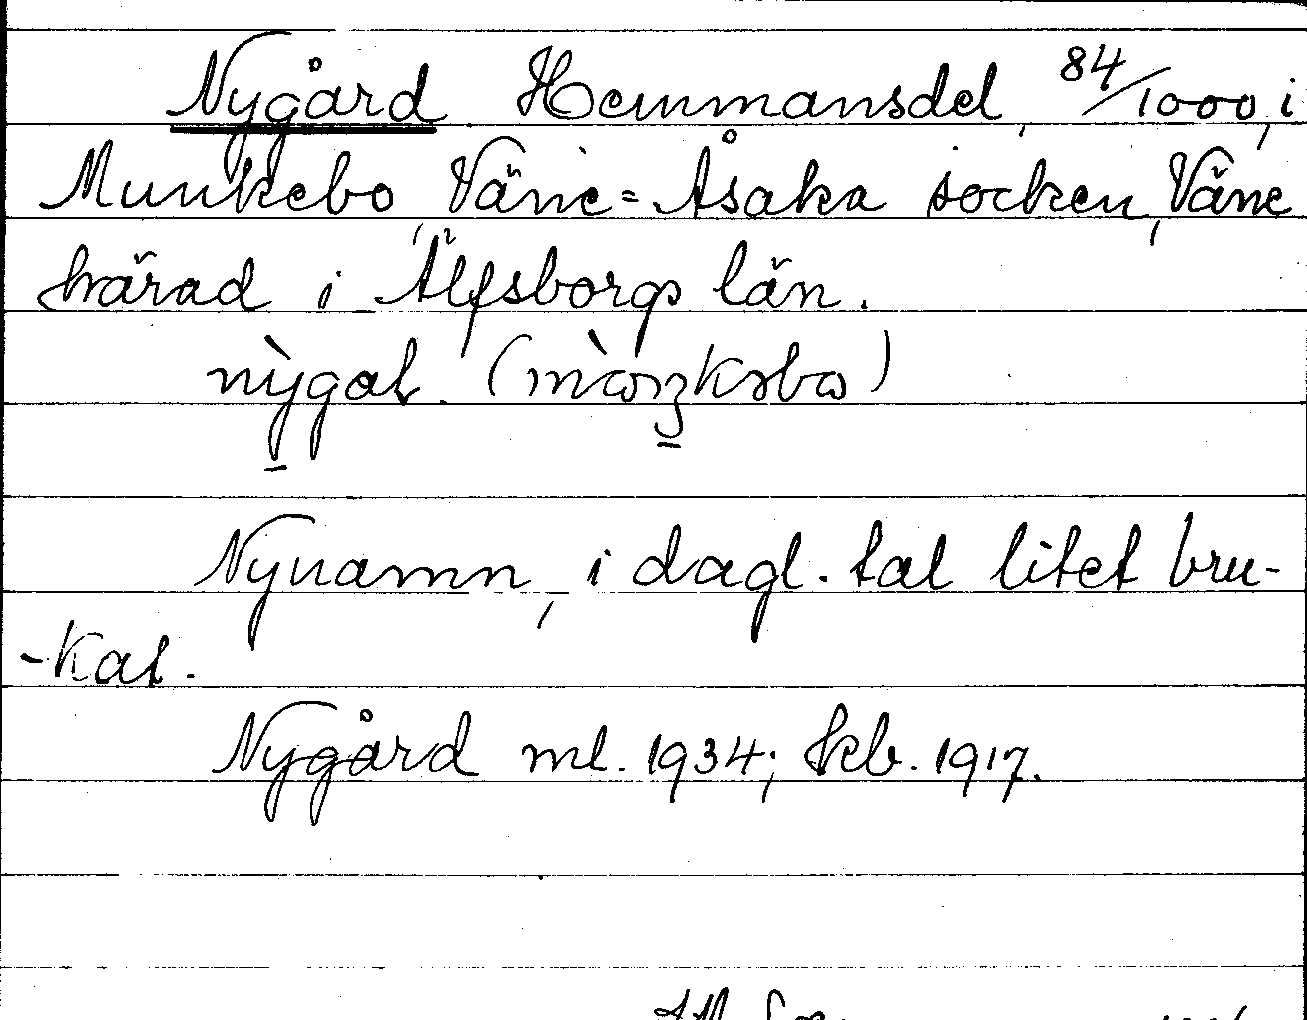 Nygård Hemmansdel, 84/1000, i
Munkebo, Väne=Åsaka socken, Väne
härad i Älfsborgs län.
nỳgaḷ. (
Nynamn, i dagl. tal litet bru-
-kat.
Nygård ml. 1934; kb. 1917.